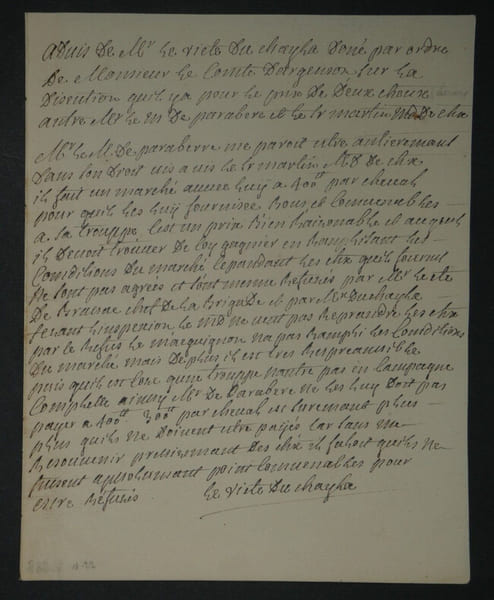 advis De Mr Le victe Du chayla Doné par ordre
De Monsieur Le Comte Dargenson, sur La
Discution quil ya pour Le prix De Deux chevaux
antre Mr Le M De parabere et Le Sr martin Md De cha
Mr Le M. De paraberre me paroit estre antierement
Dans son Droit vis a vis Le Sr martin Md De chx
il fait un marché avec Luy a 400tt par cheval
pour quil Les Luy fournisse Bons et Convenables
a sa trouppe C'est un prix Bien Raisonable et auquel
il Devoit trouver De Coy gagnier en Ramplisant Les
Conditions Du marché Cependant Les chx quil fournit
Ne sont pas agrées et sont mesme Refusés par Mr Le Cte
De Braune chef De La Brigade et par Mr Duchayla
fesant Linspection Le Md ne veut pas Reprandre Les chx
par Le Refus Le maquignon na pas Rampli Les Conditions
Du marché mais De plus il est tres Respreansible
puis quil est Cose quune trouppe nantre pas en Campagne
Complette ainsy Mr De Parabere ne Les Luy Doit pas
payer a 400tt 300tt par cheval est surement plus
plus quils ne Doivent estre payés Car sans me
Resouvenir precisement Des chx il faloit quils ne
fussent absolument point Convenables pour
estre Refusés Le victe Du chayla